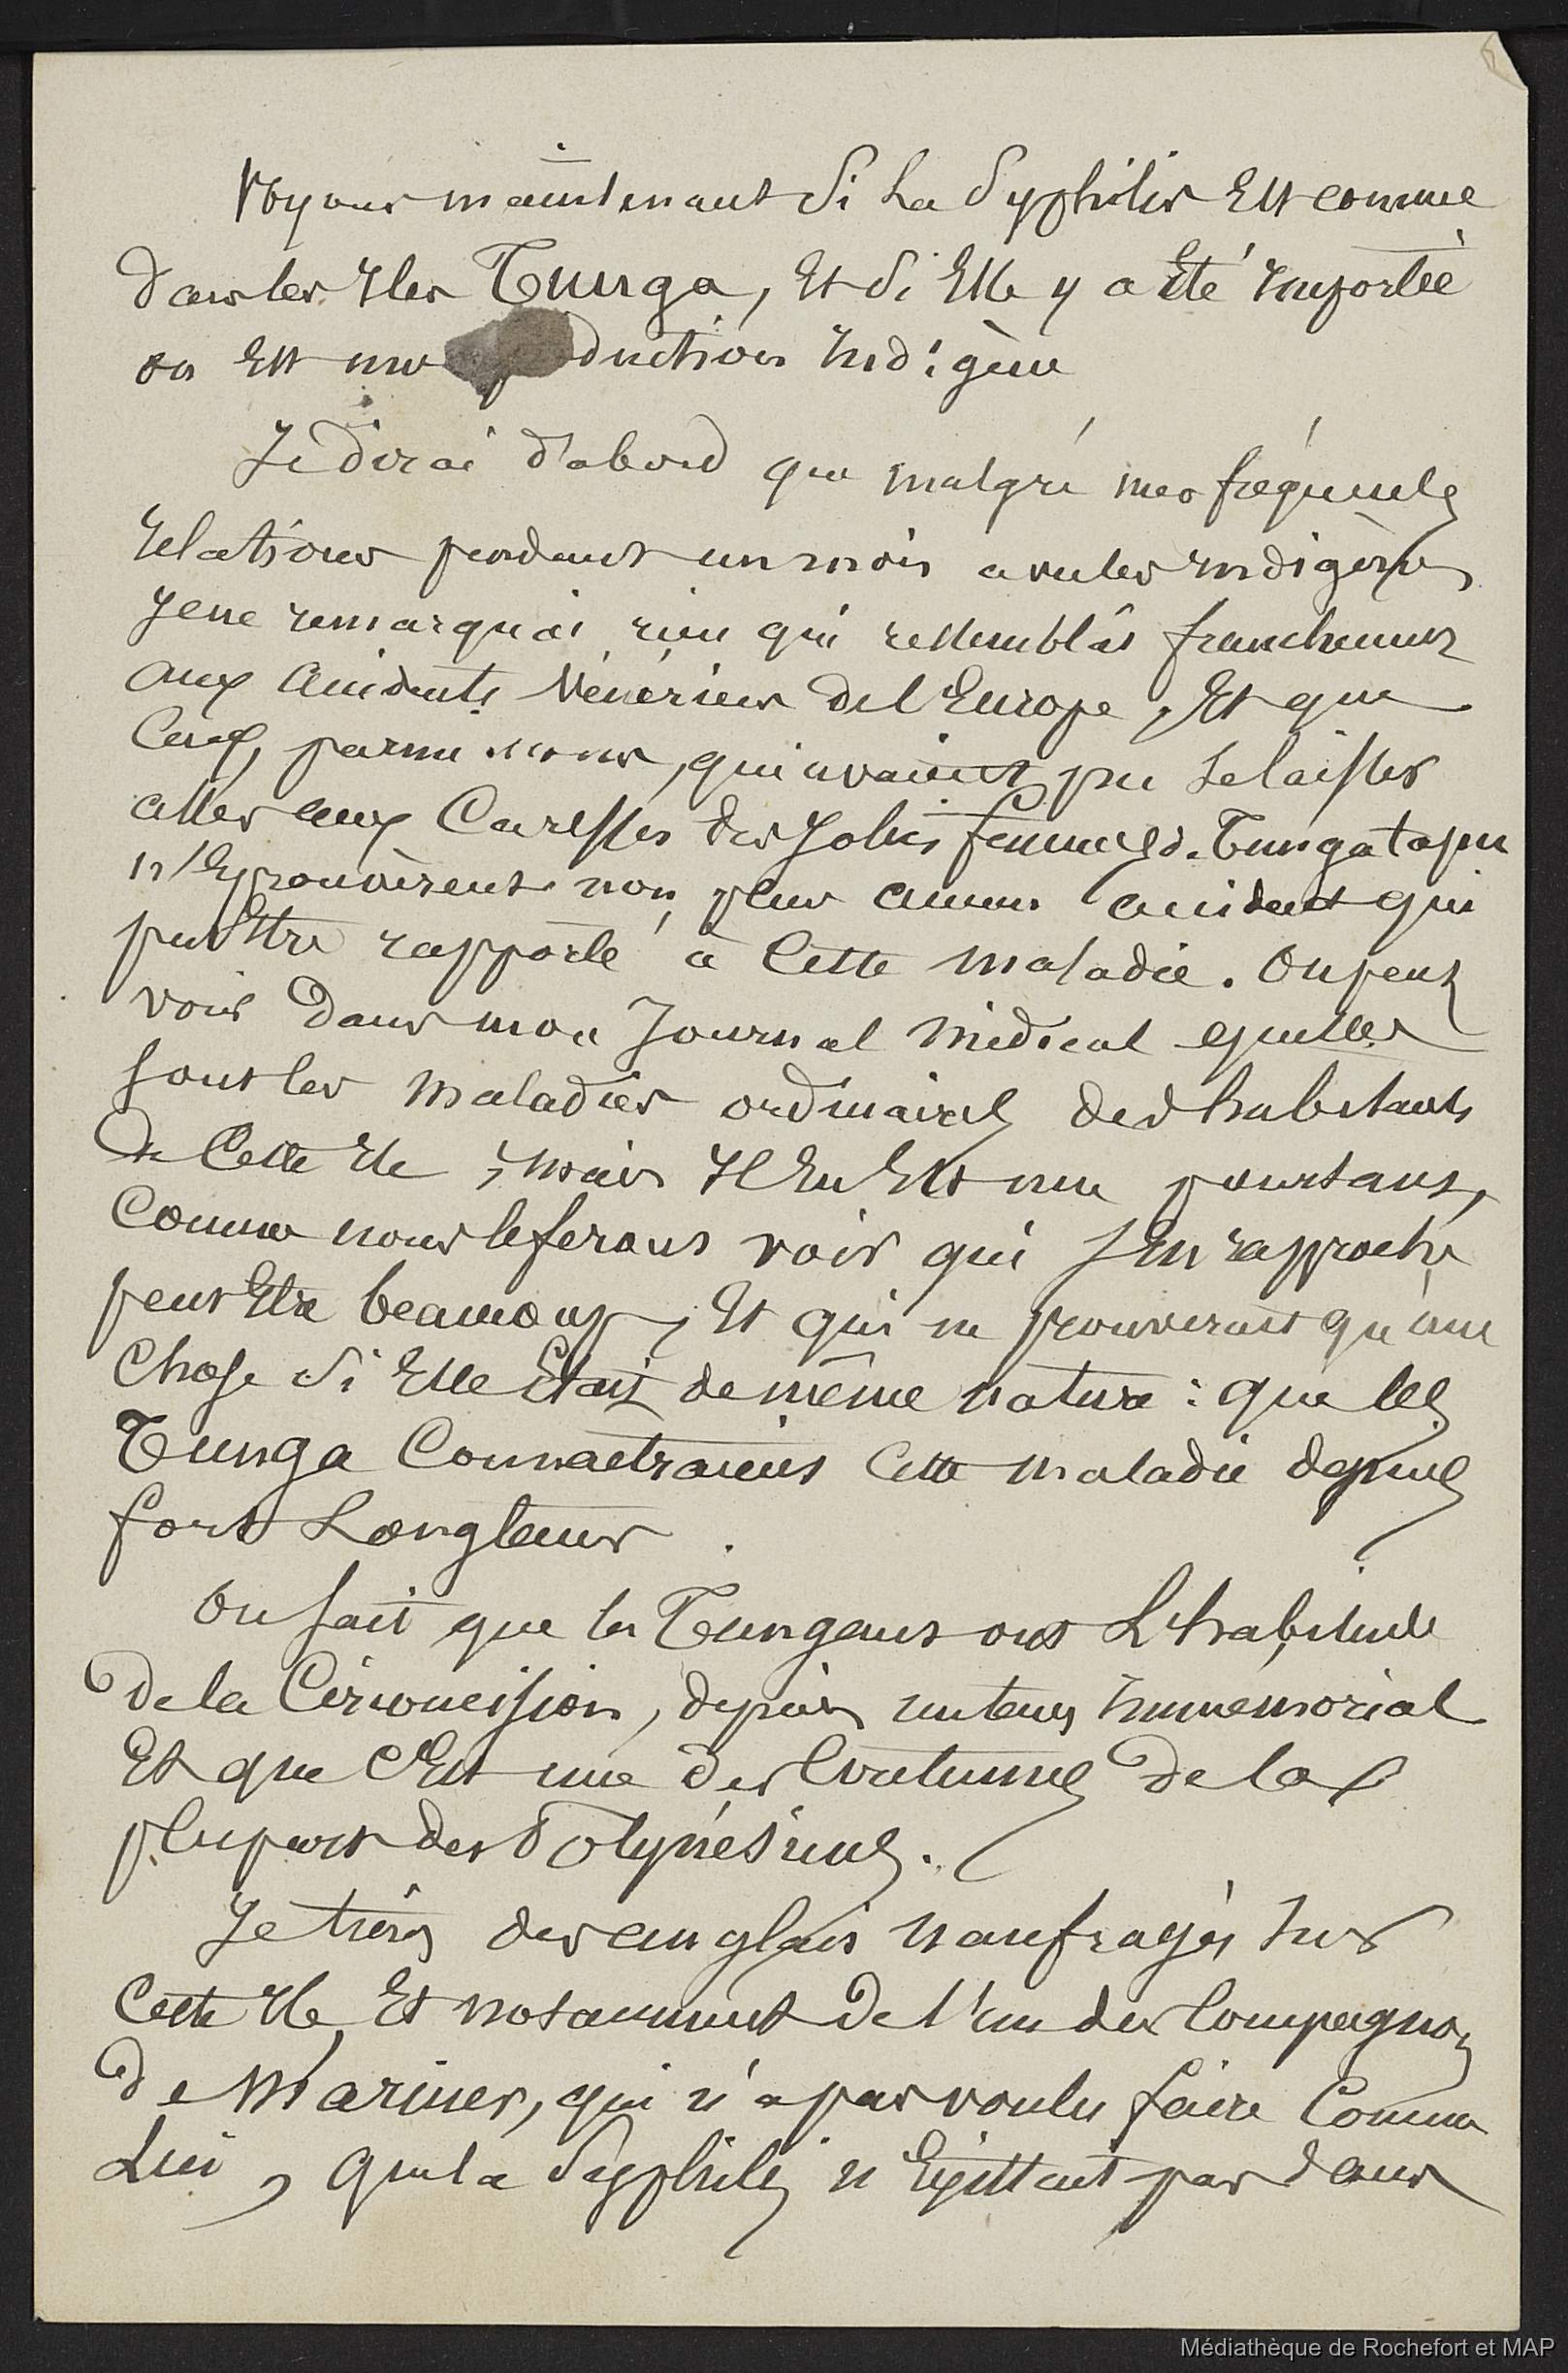 Voyons maintenant Si La Syphilis Est connue
dans les Iles Tunga, Et Si Elle y a Eté Importée
ou Est une production Indigène
Je dirai d'abord que malgré mes fréquentes
Relations pendant un mois avec les indigènes
Je ne remarquai rien qui ressemblât franchement
aux accidents Vénériens de l'Europe, Et que
Ceux, parmi nous, qui avaient pu se laisser
aller aux Caresses des Jolies femmes de Tungatapu
n'Eprouvèrent non plus aucun accident qui
put Etre rapporté à Cette maladie. On peut
voir Dans mon Journal Médical quelles
sont les maladies ordinaires des habitants
de Cette Ile ; mais Il En Est une pourtant,
Comme nous le ferons voir qui s'En rapproche
peut Etre beaucoup, Et qui ne prouverait qu'une
Chose Si Elle Etait de même nature : que les
Tunga Connaitraient Cette maladie depuis
fort Longtems.
On sait que les Tungans ont L'habitude
De la Circoncision, depuis un tems Immémorial
Et que C'Est une des Coutumes De la
plupart des Polynésiens.
Je tiens des anglais naufragés sur
Cette Ile, Et notamment De l'un des Compagnons
De Mariner, qui n'a pas voulu faire Comme
Lui, que la Syphilis n'Existait pas dans
Médiathèque de Rochefort et MAP